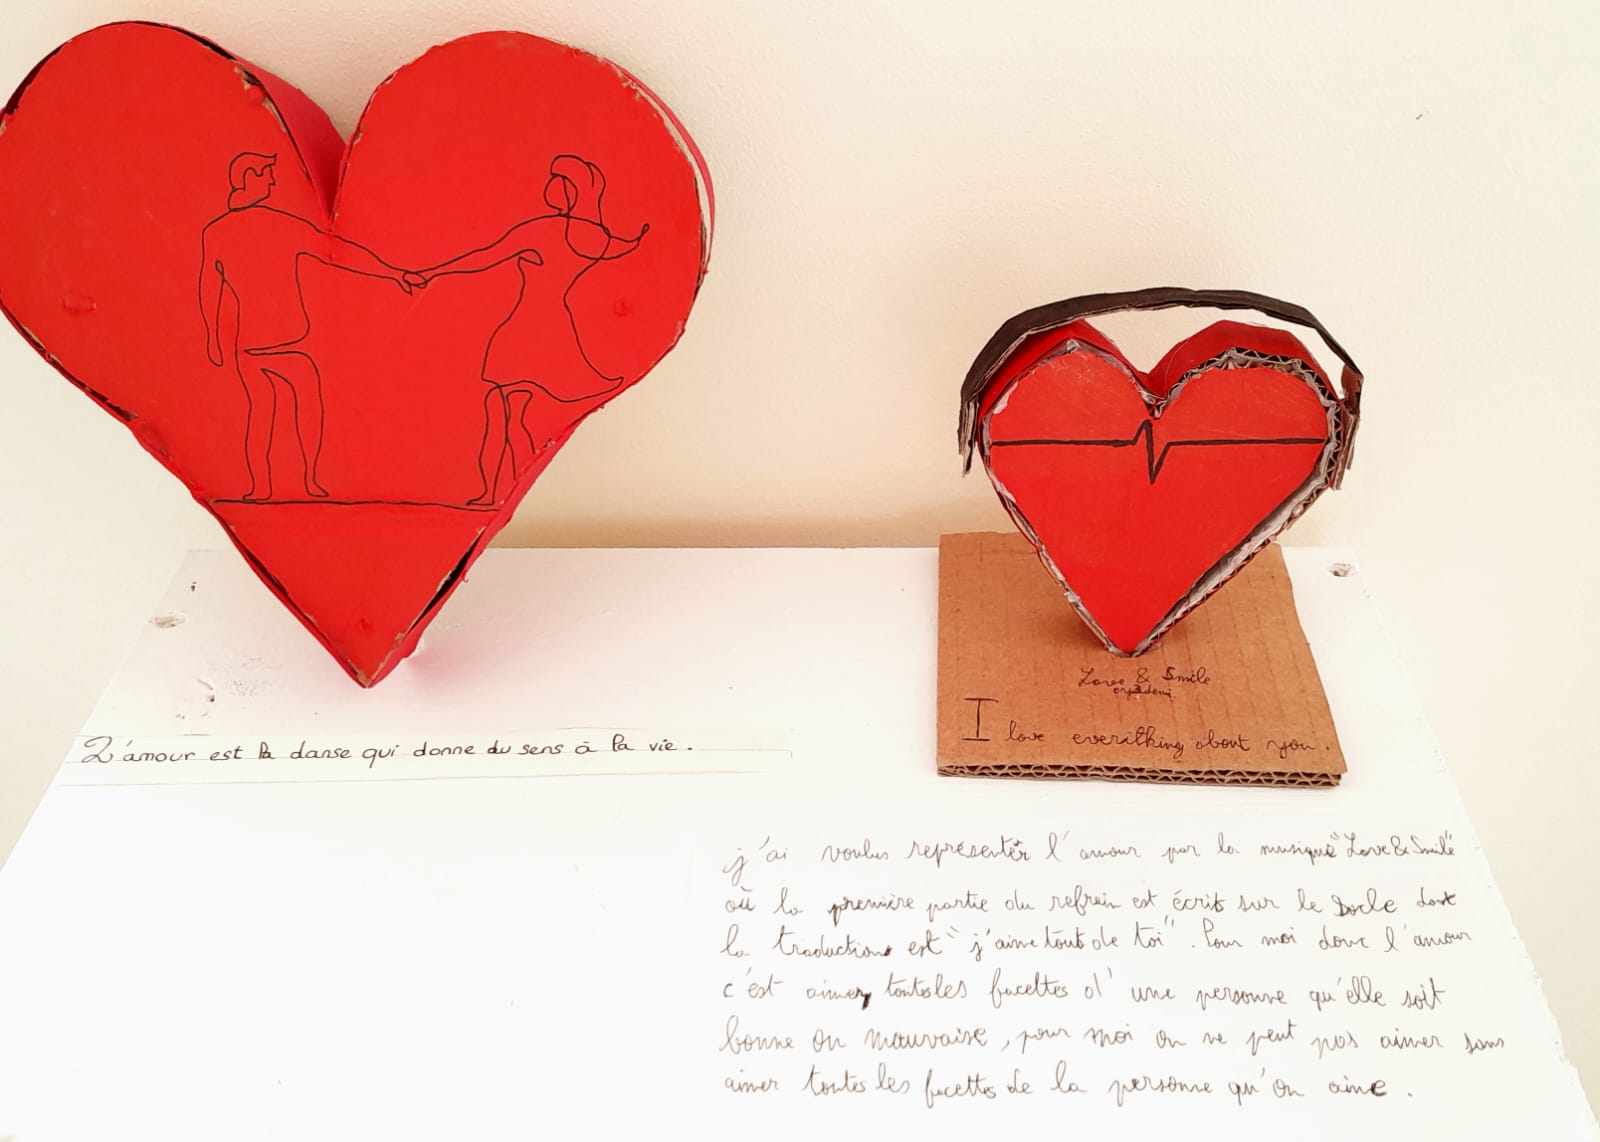 L'amour est la danse qui donne du sens à la vie.
Love & Smile
I love everithing about you.
j'ai voulus représenter l'amour par la musique "Love & Smile"
où la première partie du refrain est écrit sur le socle dont
la traduction est "j'aime tout de toi". Pour moi donc l'amour
c'est aimer toutes les facettes d'une personne qu'elle soit
bonne ou mauvaise, pour moi on ne peut pas aimer sans
aimer toutes les facettes de la personne qu'on aime.